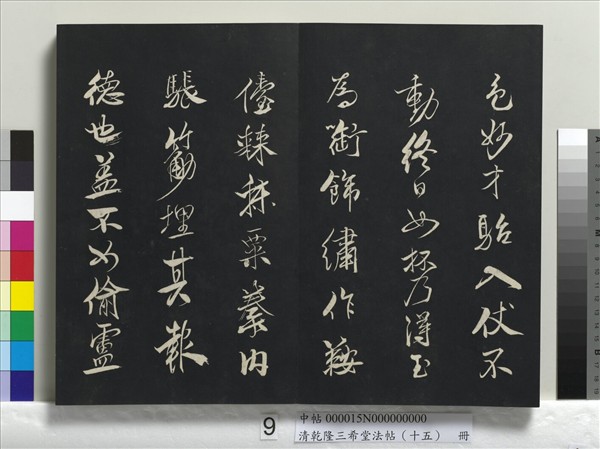 色妙才駘入仗不
動終日如坏乃得玉
為銜飾繡作鞍
儓棘秣粟豢肉
脹筋埋其報
德也蓋不如偷盧
9
中帖 000015N000000000
清乾隆三希堂法帖（十五） 冊